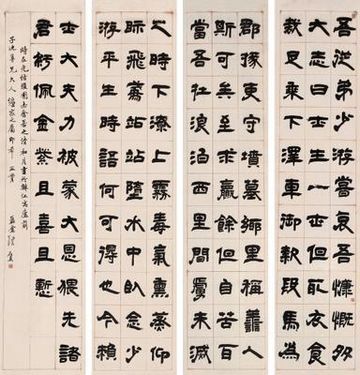 吾從弟少游嘗哀吾慷慨多
大志曰士生一世但取衣食
裁足乘下澤車御款段馬為
郡掾吏守墳墓鄉里稱善人
斯可矣至求贏餘但自苦耳
當吾在浪泊西里間虜未滅
之時下潦上霧毒氣熏蒸仰
視飛鳶跕跕墮水中臥念少
游平生時語何可得也今賴
士大夫力被蒙大恩猥先諸
君紆佩金紫且喜且慙
時在光緒
大人